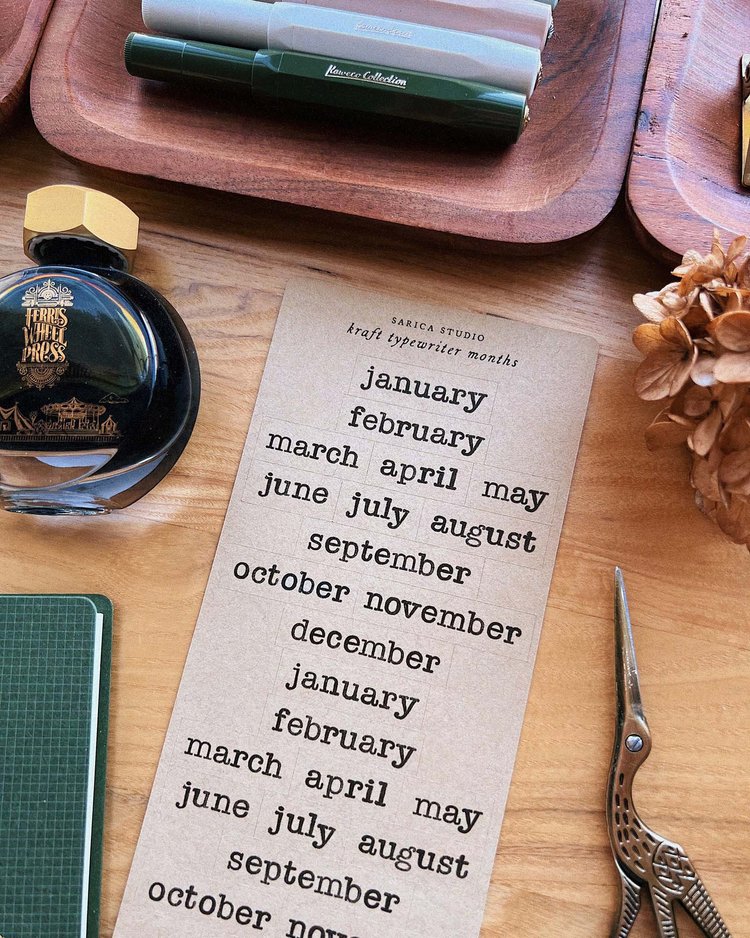 Kaweco Collection
FERRIS
WHEEL
PRESS
SARICA STUDIO
kraft typewriter months
january
february
march april may
june july august
september
october november
december
january
february
march april may
june july august
september
october nove